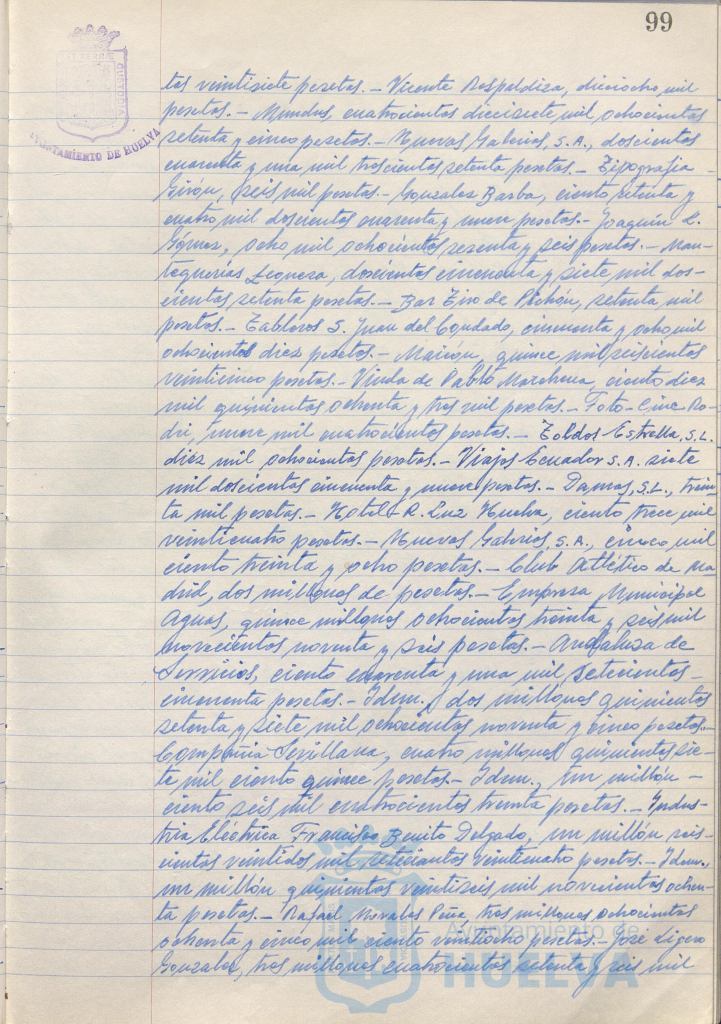 99
PORTUS MARIS ET TERRAE CUSTODIA
AYUNTAMIENTO DE HUELVA
tas veintisiete pesetas.- Vicente Respaldiza, dieciocho mil
pesetas.- Mundus, cuatrocientas diecisiete mil ochocientas
setenta y cinco pesetas.- Nuevas Galerías, S.A., doscientas
cuarenta y una mil trescientas setenta pesetas.- Tipografía
Girón, seis mil pesetas.- González Barba, ciento setenta y
cuatro mil doscientas cuarenta y nueve pesetas.- Joaquín L.
Gómez, ocho mil ochocientas sesenta y seis pesetas.- Man-
tequerías Leonesa, doscientas cincuenta y siete mil dos-
cientas setenta pesetas.- Bar Tiro de Pichón, setenta mil
pesetas.- Tableros S. Juan del Condado, cincuenta y ocho mil
ochocientas diez pesetas.- quince mil seiscientas
veinticinco pesetas.- Viuda de Pablo Marchena, ciento diez
mil quinientas ochenta y tres mil pesetas.- Foto-Cine Ro-
dri, nueve mil cuatrocientas pesetas.- Toldos Estrella, S.L.
diez mil ochocientas pesetas.- Viajes Ecuador S.A. siete
mil doscientas cincuenta y nueve pesetas.- Damas, S.L., trein-
ta mil pesetas.- Hotel-R. Luz Huelva, ciento trece mil
veinticuatro pesetas.- Nuevas Galerías, S.A., cinco mil
ciento treinta y ocho pesetas.- Club Atlético de Ma-
drid, dos millones de pesetas.- Empresa Municipal
Aguas, quince millones ochocientas treinta y seis mil
novecientas noventa y seis pesetas.- Andaluza de
Servicios, ciento cuarenta y una mil setecientas-
cincuenta pesetas.- Idem., dos millones quinientas
setenta y siete mil ochocientas noventa y cinco pesetas.-
Compañía Sevillana, cuatro millones quinientas sie-
te mil ciento quince pesetas.- Idem., un millón-
ciento seis mil cuatrocientas treinta pesetas.- Indus-
tria Eléctrica Francisco Benito Delgado, un millón seis-
cientas veintidos mil setecientas veinticuatro pesetas.- Idem.,
un millón quinientas veintiseis mil novecientas ochen-
ta pesetas.- Rafael Morales Peña, tres millones ochocientas
ochenta y cinco mil ciento veintiocho pesetas.- José Ligero
González, tres millones cuatrocientas setenta y seis mil
Ayuntamiento de
HUELVA